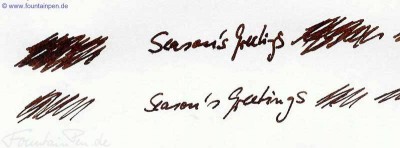 © www.fountainpen.de
Season's Greetings
Season's Greetings
FountainPen.de